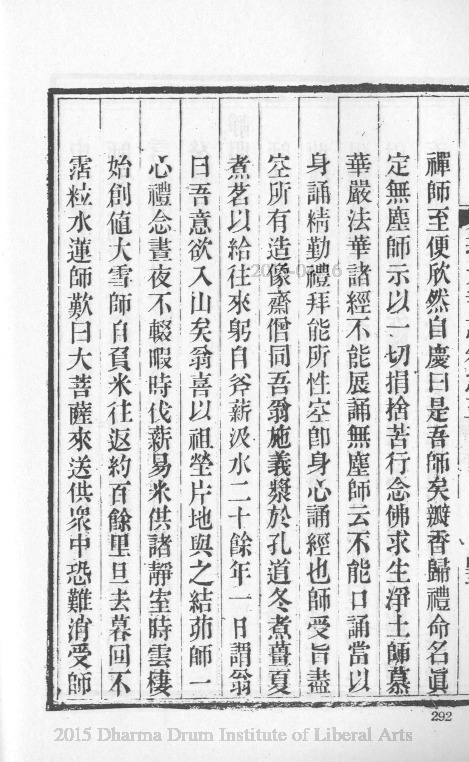 禪師至便欣然自慶曰是吾師矣瓣香歸禮命名眞
定無塵師示以一切捐捨苦行念佛求生淨土師慕
華嚴法華諸經不能展誦無塵師云不能口誦當以
身誦精勤禮拜能所性空卽身心誦經也師受旨盡
空所有造像齋僧同吾翁施義漿於孔道冬煮薑夏
煮茗以給往來躬自斧薪汲水二十餘年一日謂翁
曰吾意欲入山矣翁喜以祖塋片地與之結茆師一
心禮念晝夜不輟暇時伐薪易米供諸靜室時雲棲
始創値大雪師自負米往返約百餘里旦去暮回不
霑粒水蓮師歎曰大菩薩來送供衆中恐難消受師
292
2015 Dharma Drum Institute of Liberal Arts